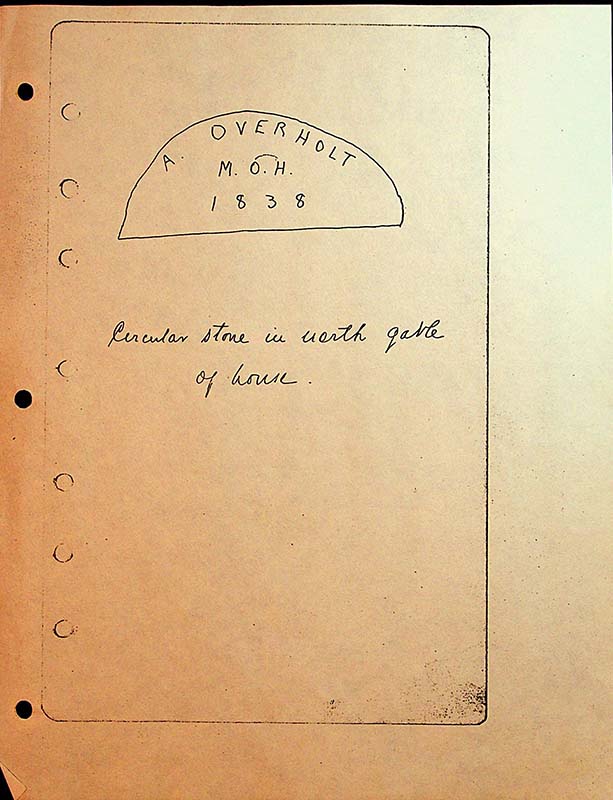 A. OVERHOLT
M.O.H.
1838
Circular stone in north gable
of house.